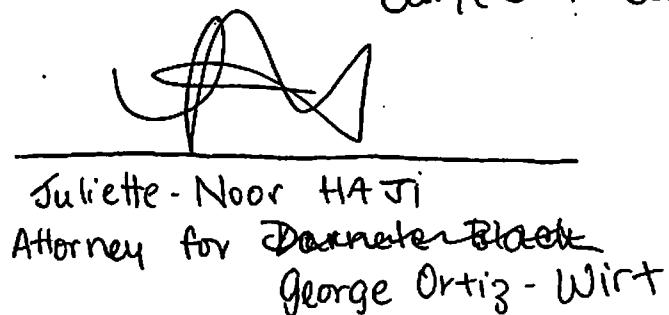 Juliette-Noor HAJi
Attorney for
George Ortiz-Wirt